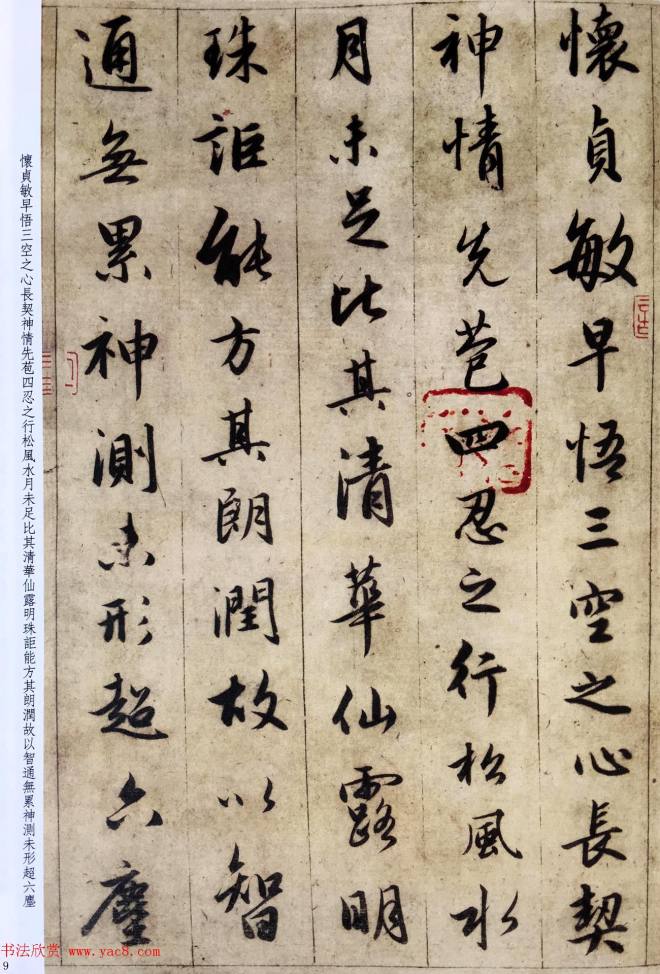 懷貞敏早悟三空之心長契
神情先苞四忍之行松風水
月未足比其清華仙露明
珠詎能方其朗潤故以智
通無累神測未形超六塵
懷貞敏早悟三空之心長契神情先苞四忍之行松風水月未足比其清華仙露明珠詎能方其朗潤故以智通無累神測未形超六塵
书法欣赏 www.yac8.com
9